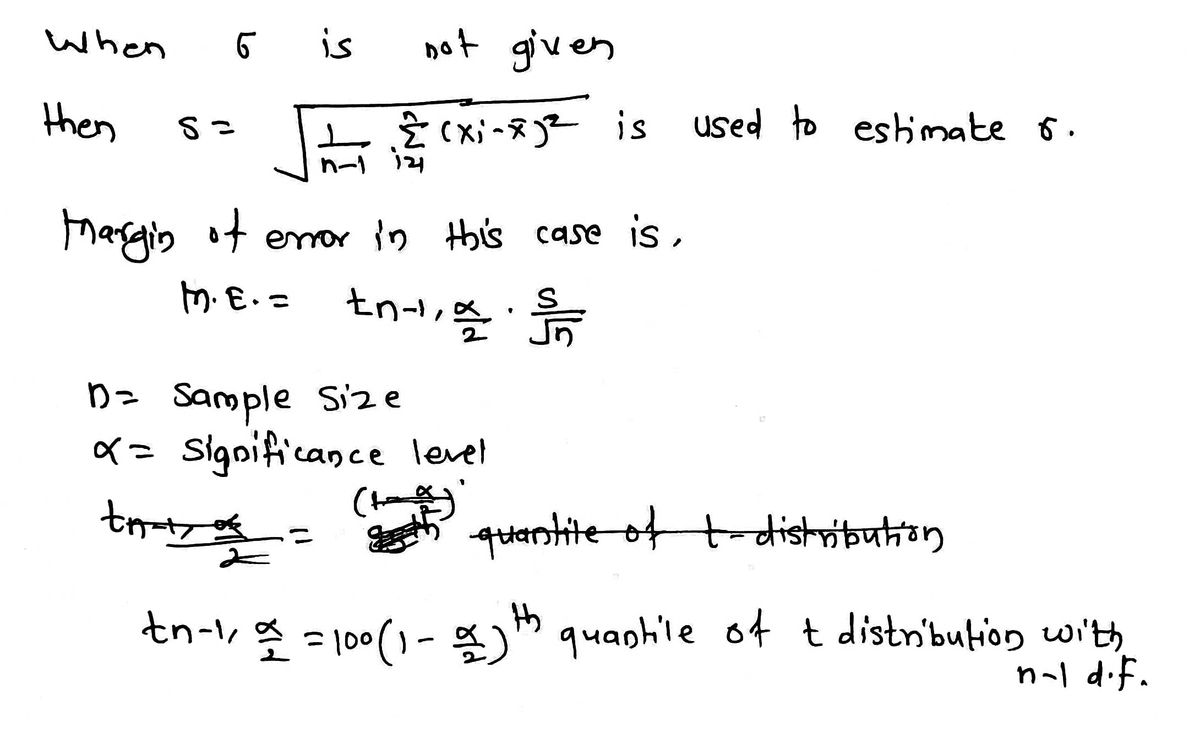 When σ is not given
then s = √(1/(n-1) Σ_{i=1}^{n} (xi - x̄)²) is used to estimate σ.
Margin of error in this case is,
M.E. = t_{n-1, α/2} · S/√n
n = Sample size
α = Significance level
t_{n-1, α/2} = (1 - α/2) quantile of t-distribution
t_{n-1, α/2} = 100(1 - α/2)^th quantile of t distribution with
n-1 d.f.